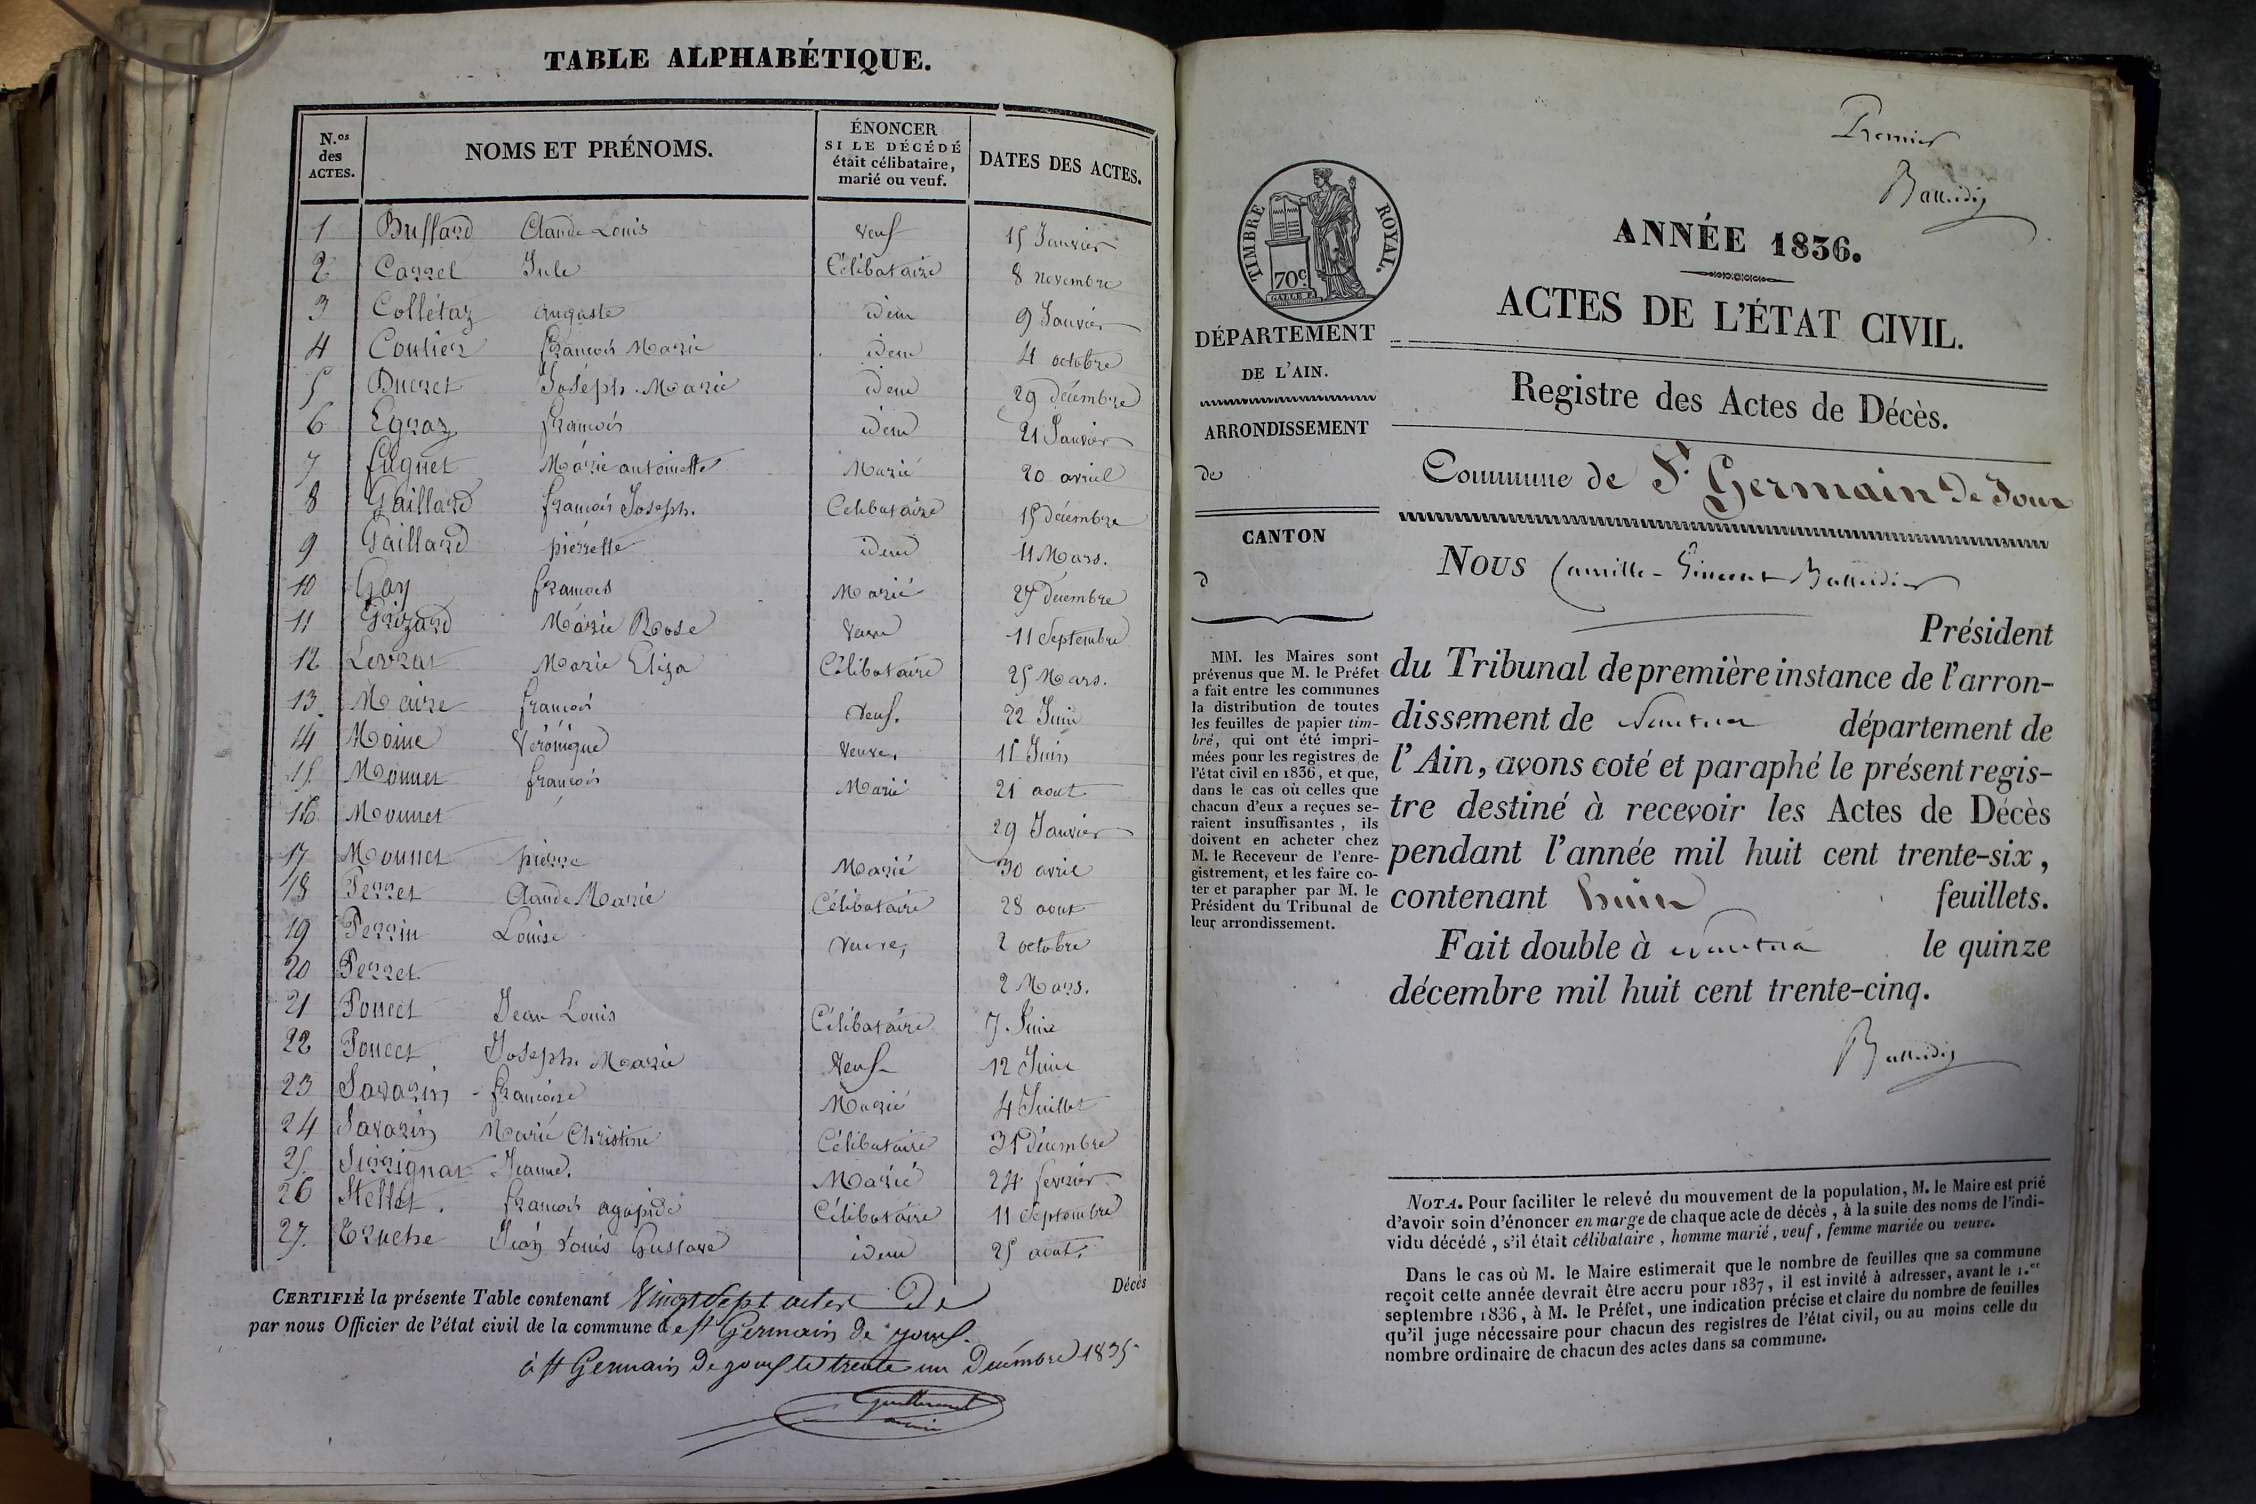 TABLE ALPHABÉTIQUE.
N.os des ACTES. NOMS ET PRÉNOMS. ÉNONCER SI LE DÉCÉDÉ était célibataire, marié ou veuf. DATES DES ACTES.
1 Buffard Claude Louis Veuf 15 Janvier
2 Carrel Jule Célibataire 8 novembre
3 Collétaz auguste idem 9 Janvier
4 Coutier françois Marie idem 4 octobre
5 Ducret Joséph Marie idem 29 décembre
6 Egraz françois idem 21 Janvier
7 fuguet Marie antoinette Marié 20 avril
8 Gaillard françois Joseph. Celibataire 15 décembre
9 Gaillard pierrette idem 11 Mars.
10 Gay françois Marié 27 décembre
11 Grizard Marie Rose Veuve 11 Septembre
12 Levrat Marie Eliza Célibataire 25 Mars.
13 Maire françois Veuf. 22 Juin
14 Moine Véronique Veuve, 11 Juin
15 Monnet françois Marié 21 aout
16 Monnet 29 Janvier
17 Monnet pierre Marié 30 avril
18 Perret Claude Marie Célibataire 28 aout
19 Perrin Louise Veuve, 2 octobre
20 Perret 2 Mars.
21 Poncet Jean Louis Célibataire 7 Juin
22 Poncet Joseph Marie Veuf 12 Juin
23 Savarin françoise Marié 4 Juillet
24 Savarin Marie Christine Célibataire 31 décembre
25 Surrignat Jeanne. Marié 24 fevrier
26 Hettet. françois agapide Célibataire 11 Septembre
27. Truche Jean Louis Gustave idem 25 aout.
CERTIFIÉ la présente Table contenant Vingt Sept actes De Décès
par nous Officier de l'état civil de la commune de st Germain de joux.
à st Germain de joux le trente un Decémbre 1835
Premier
Année 1836.
TIMBRE ROYAL.
70c
ACTES DE L'ÉTAT CIVIL.
Registre des Actes de Décès.
Commune de St Germain de Joux
DÉPARTEMENT
DE L'AIN.
ARRONDISSEMENT
de
CANTON
d
MM. les Maires sont
prévenus que M. le Préfet
a fait entre les communes
la distribution de toutes
les feuilles de papier tim-
bré, qui ont été impri-
mées pour les registres de
l'état civil en 1836, et que,
dans le cas où celles que
chacun d'eux a reçues se-
raient insuffisantes, ils
doivent en acheter chez
M. le Receveur de l'enre-
gistrement, et les faire co-
ter et parapher par M. le
Président du Tribunal de
leur arrondissement.
Nous Camille-Vincent Balleidier
Président
du Tribunal de première instance de l'arron-
dissement de Nantua département de
l'Ain, avons coté et paraphé le présent regis-
tre destiné à recevoir les Actes de Décès
pendant l'année mil huit cent trente-six,
contenant huit feuillets.
Fait double à Nantua le quinze
décembre mil huit cent trente-cinq.
NOTA. Pour faciliter le relevé du mouvement de la population, M. le Maire est prié
d'avoir soin d'énoncer en marge de chaque acte de décès, à la suite des noms de l'indi-
vidu décédé, s'il était célibataire, homme marié, veuf, femme mariée ou veuve.
Dans le cas où M. le Maire estimerait que le nombre de feuilles que sa commune
reçoit cette année devrait être accru pour 1837, il est invité à adresser, avant le 1.er
septembre 1836, à M. le Préfet, une indication précise et claire du nombre de feuilles
qu'il juge nécessaire pour chacun des registres de l'état civil, ou au moins celle du
nombre ordinaire de chacun des actes dans sa commune.